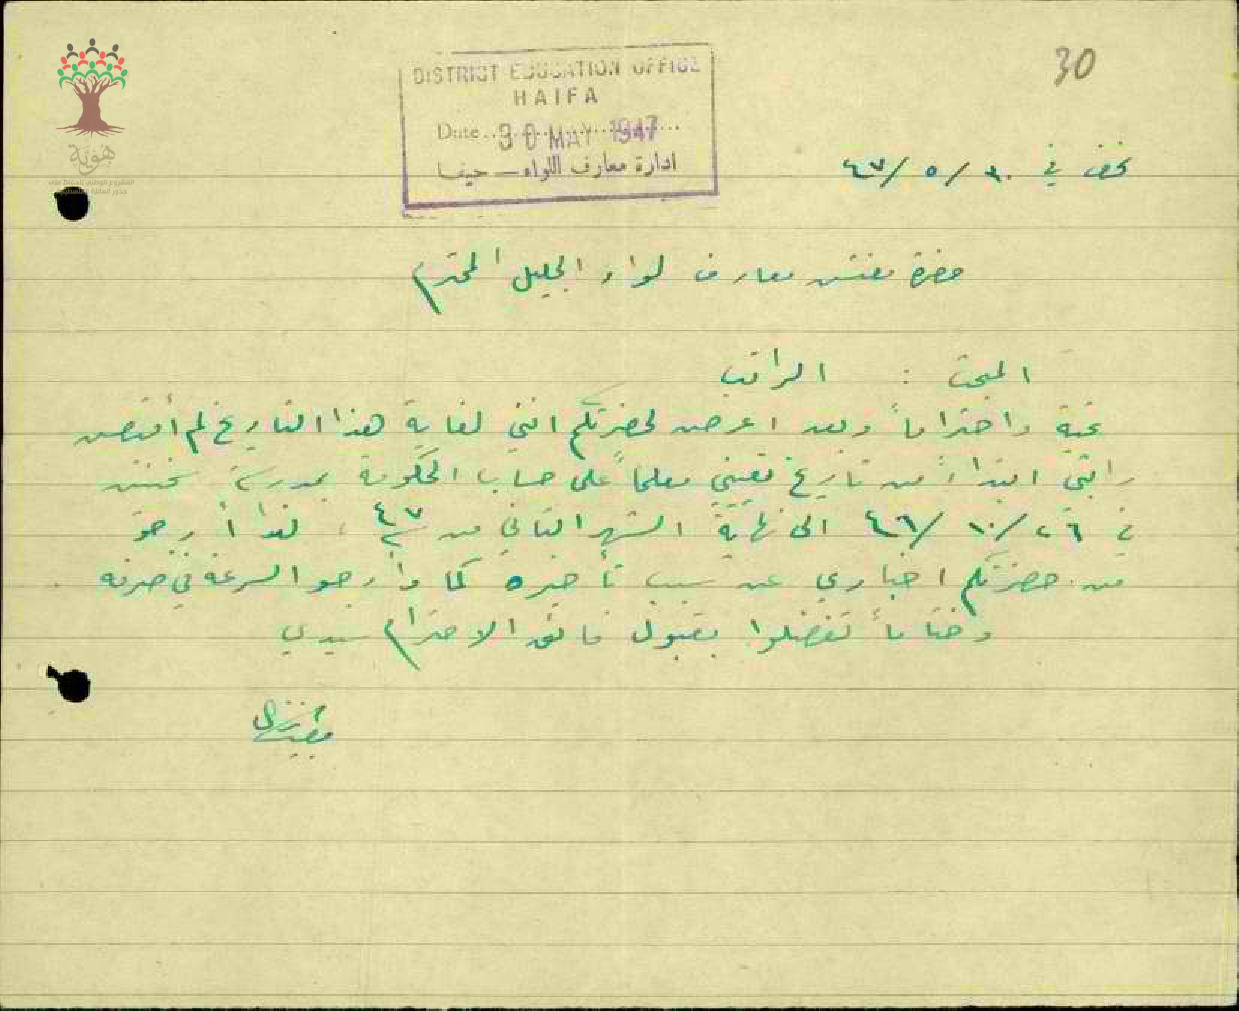 30
DISTRICT EDUCATION OFFICE
HAIFA
Date 30 MAY 1947
ادارة معارف اللواء — حيفا
هوية
في ٣٠ / ٥ / ٤٧
حضرة مفتش معارف لواء الجليل المحترم
المبحث : الراتب
تحية واحتراماً وبعد اعرض لحضرتكم انني لغاية هذا التاريخ لم أقبض
راتبي ابتداءً من تاريخ تعييني معلماً على حساب الحكومة بمدرسة
في ٢٦ / ١٠ / ٤٦ الى نهاية الشهر الثاني من سنة ٤٧ ، لذا أرجو
من حضرتكم اخباري عن سبب تأخيره كما وأرجو السرعة في صرفه .
وختاماً تفضلوا بقبول فائق الاحترام سيدي